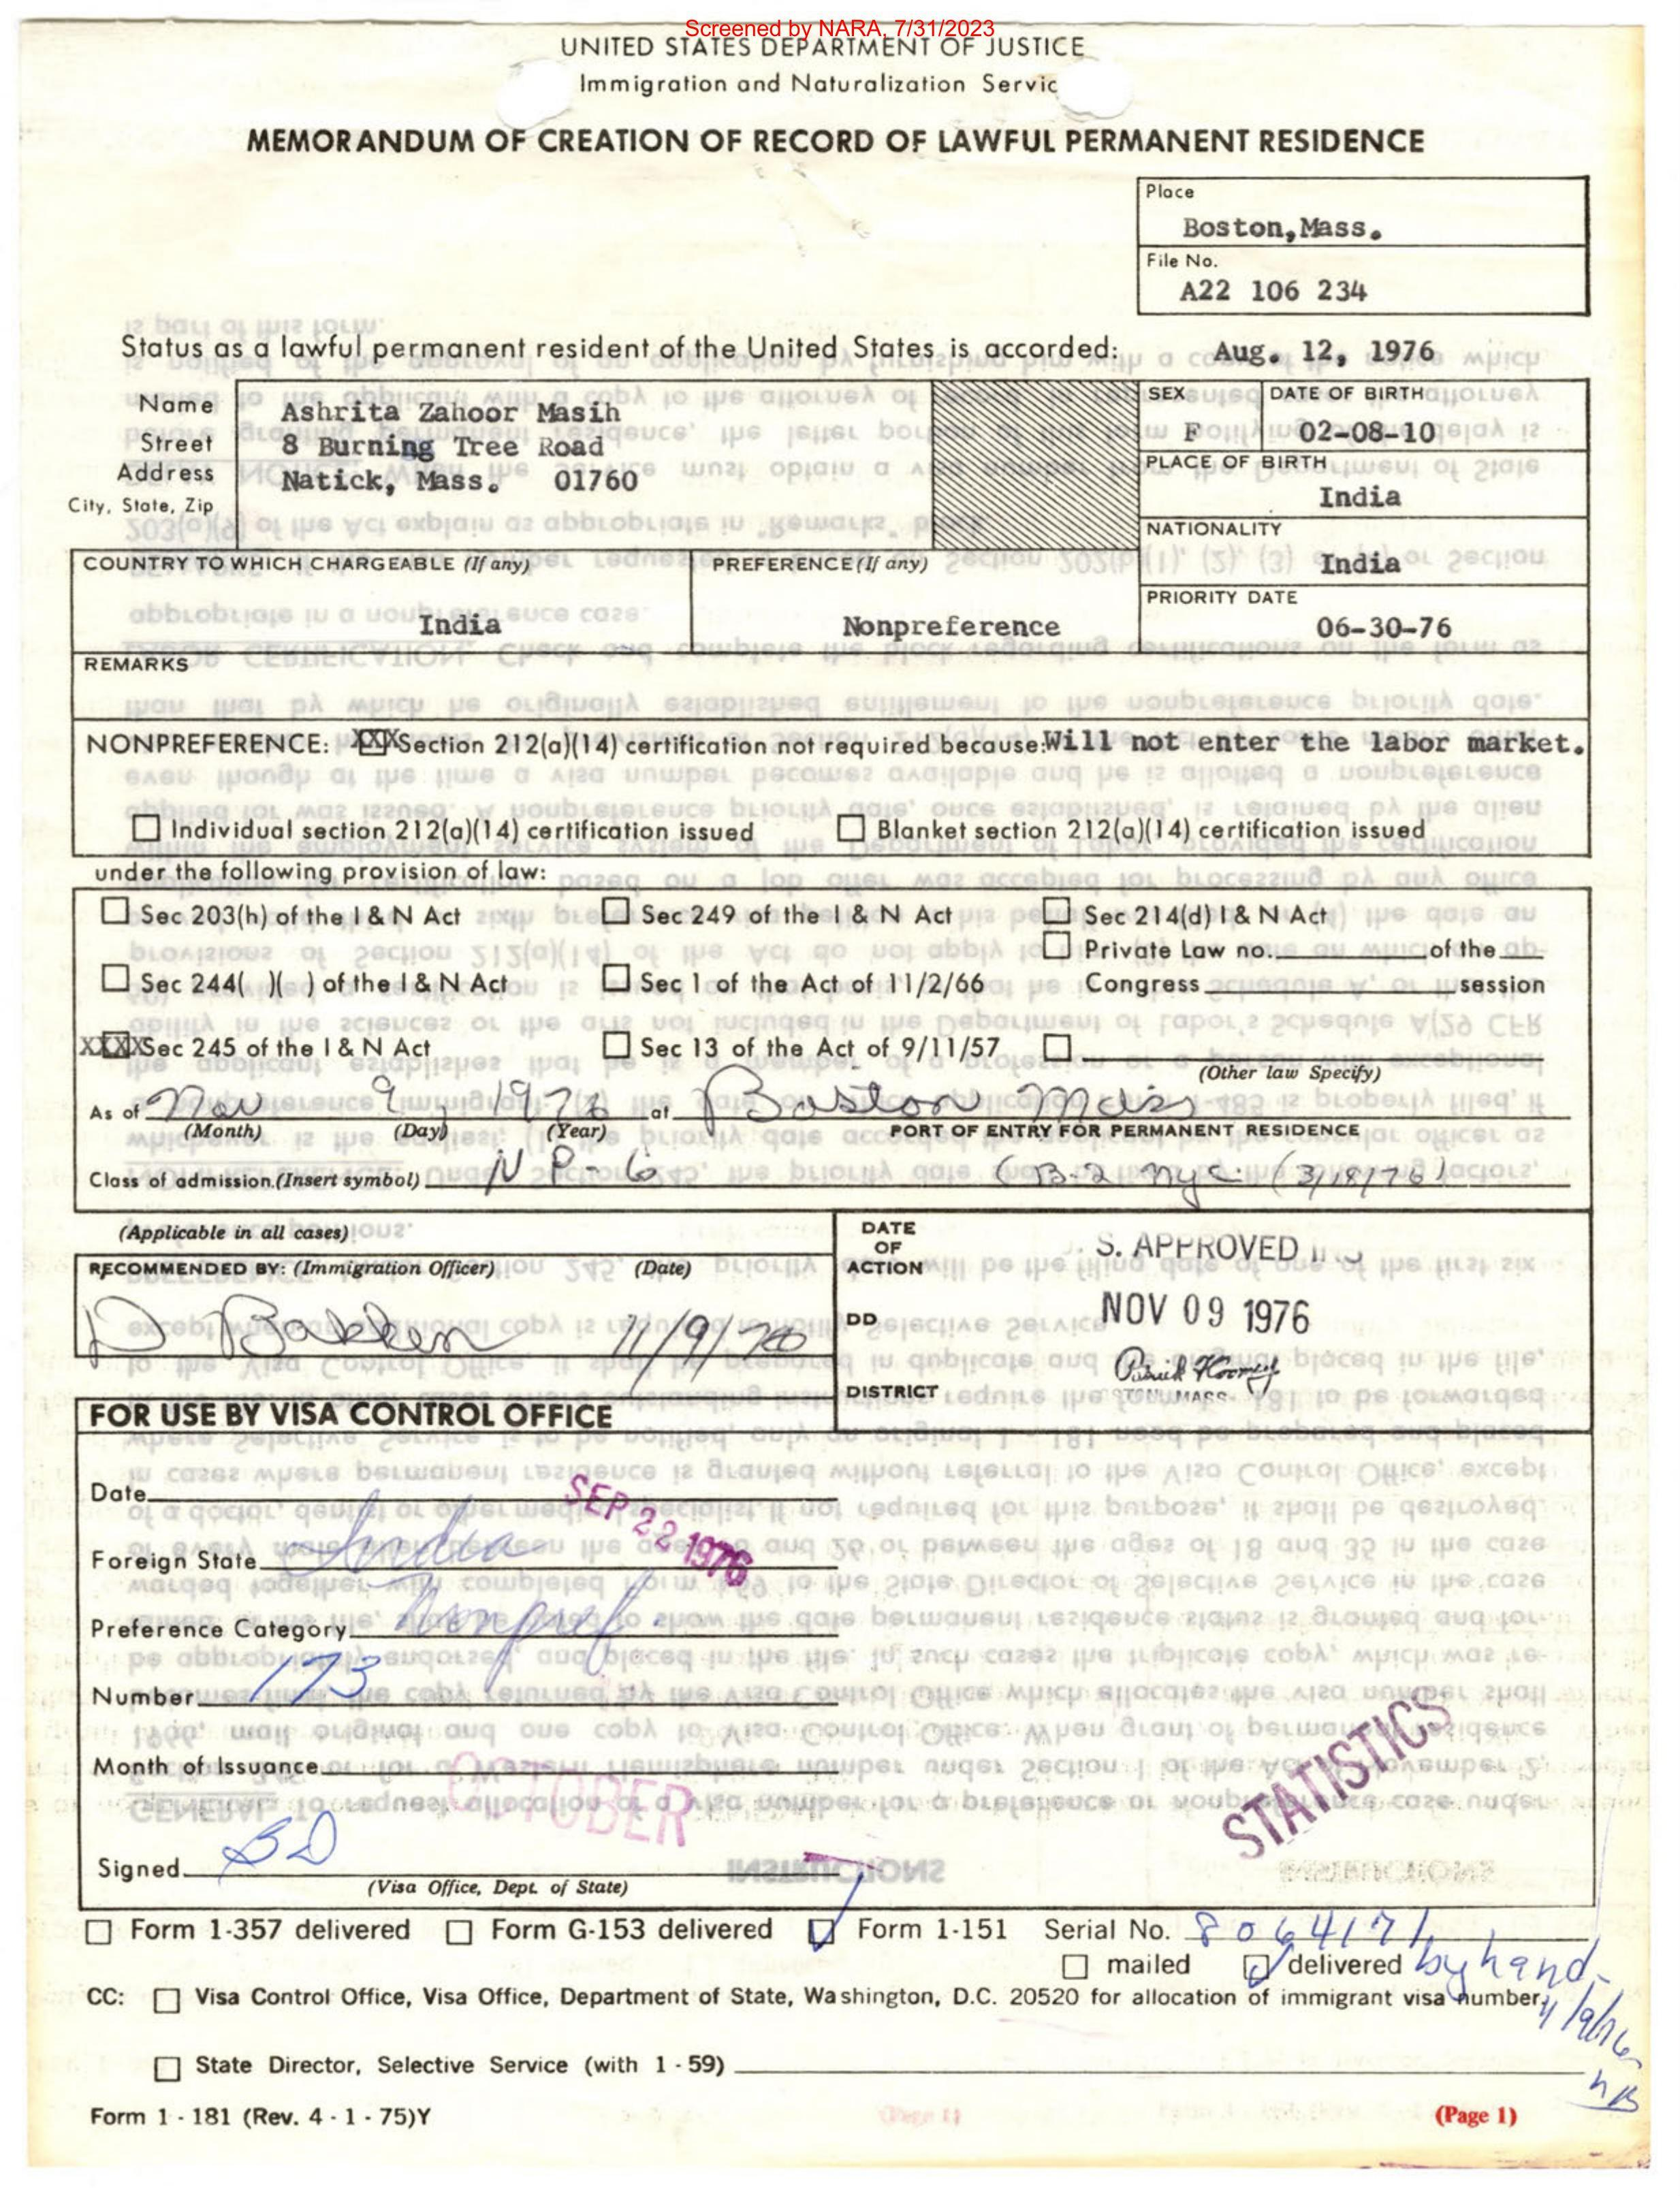 Screened by NARA, 7/31/2023
UNITED STATES DEPARTMENT OF JUSTICE
Immigration and Naturalization Servic
MEMORANDUM OF CREATION OF RECORD OF LAWFUL PERMANENT RESIDENCE
Place
Boston,Mass.
File No.
A22 106 234
Status as a lawful permanent resident of the United States is accorded: Aug. 12, 1976
Name Ashrita Zahoor Masih
Street 8 Burning Tree Road
Address Natick, Mass. 01760
City, State, Zip
SEX F
DATE OF BIRTH 02-08-10
PLACE OF BIRTH
India
NATIONALITY
India
COUNTRY TO WHICH CHARGEABLE (If any)
India
PREFERENCE (If any)
Nonpreference
PRIORITY DATE
06-30-76
REMARKS
NONPREFERENCE: XXX Section 212(a)(14) certification not required because: Will not enter the labor market.
Individual section 212(a)(14) certification issued Blanket section 212(a)(14) certification issued
under the following provision of law:
Sec 203(h) of the I & N Act Sec 249 of the I & N Act Sec 214(d) I & N Act
Private Law no. of the
Sec 244( )( ) of the I & N Act Sec 1 of the Act of 11/2/66 Congress session
XXXX Sec 245 of the I & N Act Sec 13 of the Act of 9/11/57
(Other law Specify)
As of Nov 9, 1976 at Boston Mass
(Month) (Day) (Year) PORT OF ENTRY FOR PERMANENT RESIDENCE
Class of admission.(Insert symbol) NP-6 (B-2 nyc (3/18/76)
(Applicable in all cases)
RECOMMENDED BY: (Immigration Officer) (Date)
D 11/9/76
DATE OF ACTION
S. APPROVED
DD NOV 09 1976
DISTRICT
MASS
FOR USE BY VISA CONTROL OFFICE
Date SEP 22 1976
Foreign State India
Preference Category Nonpref.
Number 173
Month of Issuance OCTOBER
STATISTICS
Signed BD
(Visa Office, Dept. of State)
Form 1-357 delivered Form G-153 delivered Form 1-151 Serial No. 8064171
mailed delivered by hand
CC: Visa Control Office, Visa Office, Department of State, Washington, D.C. 20520 for allocation of immigrant visa number,
11/9/76
State Director, Selective Service (with 1 - 59)
Form 1 - 181 (Rev. 4 - 1 - 75)Y
(Page 1)